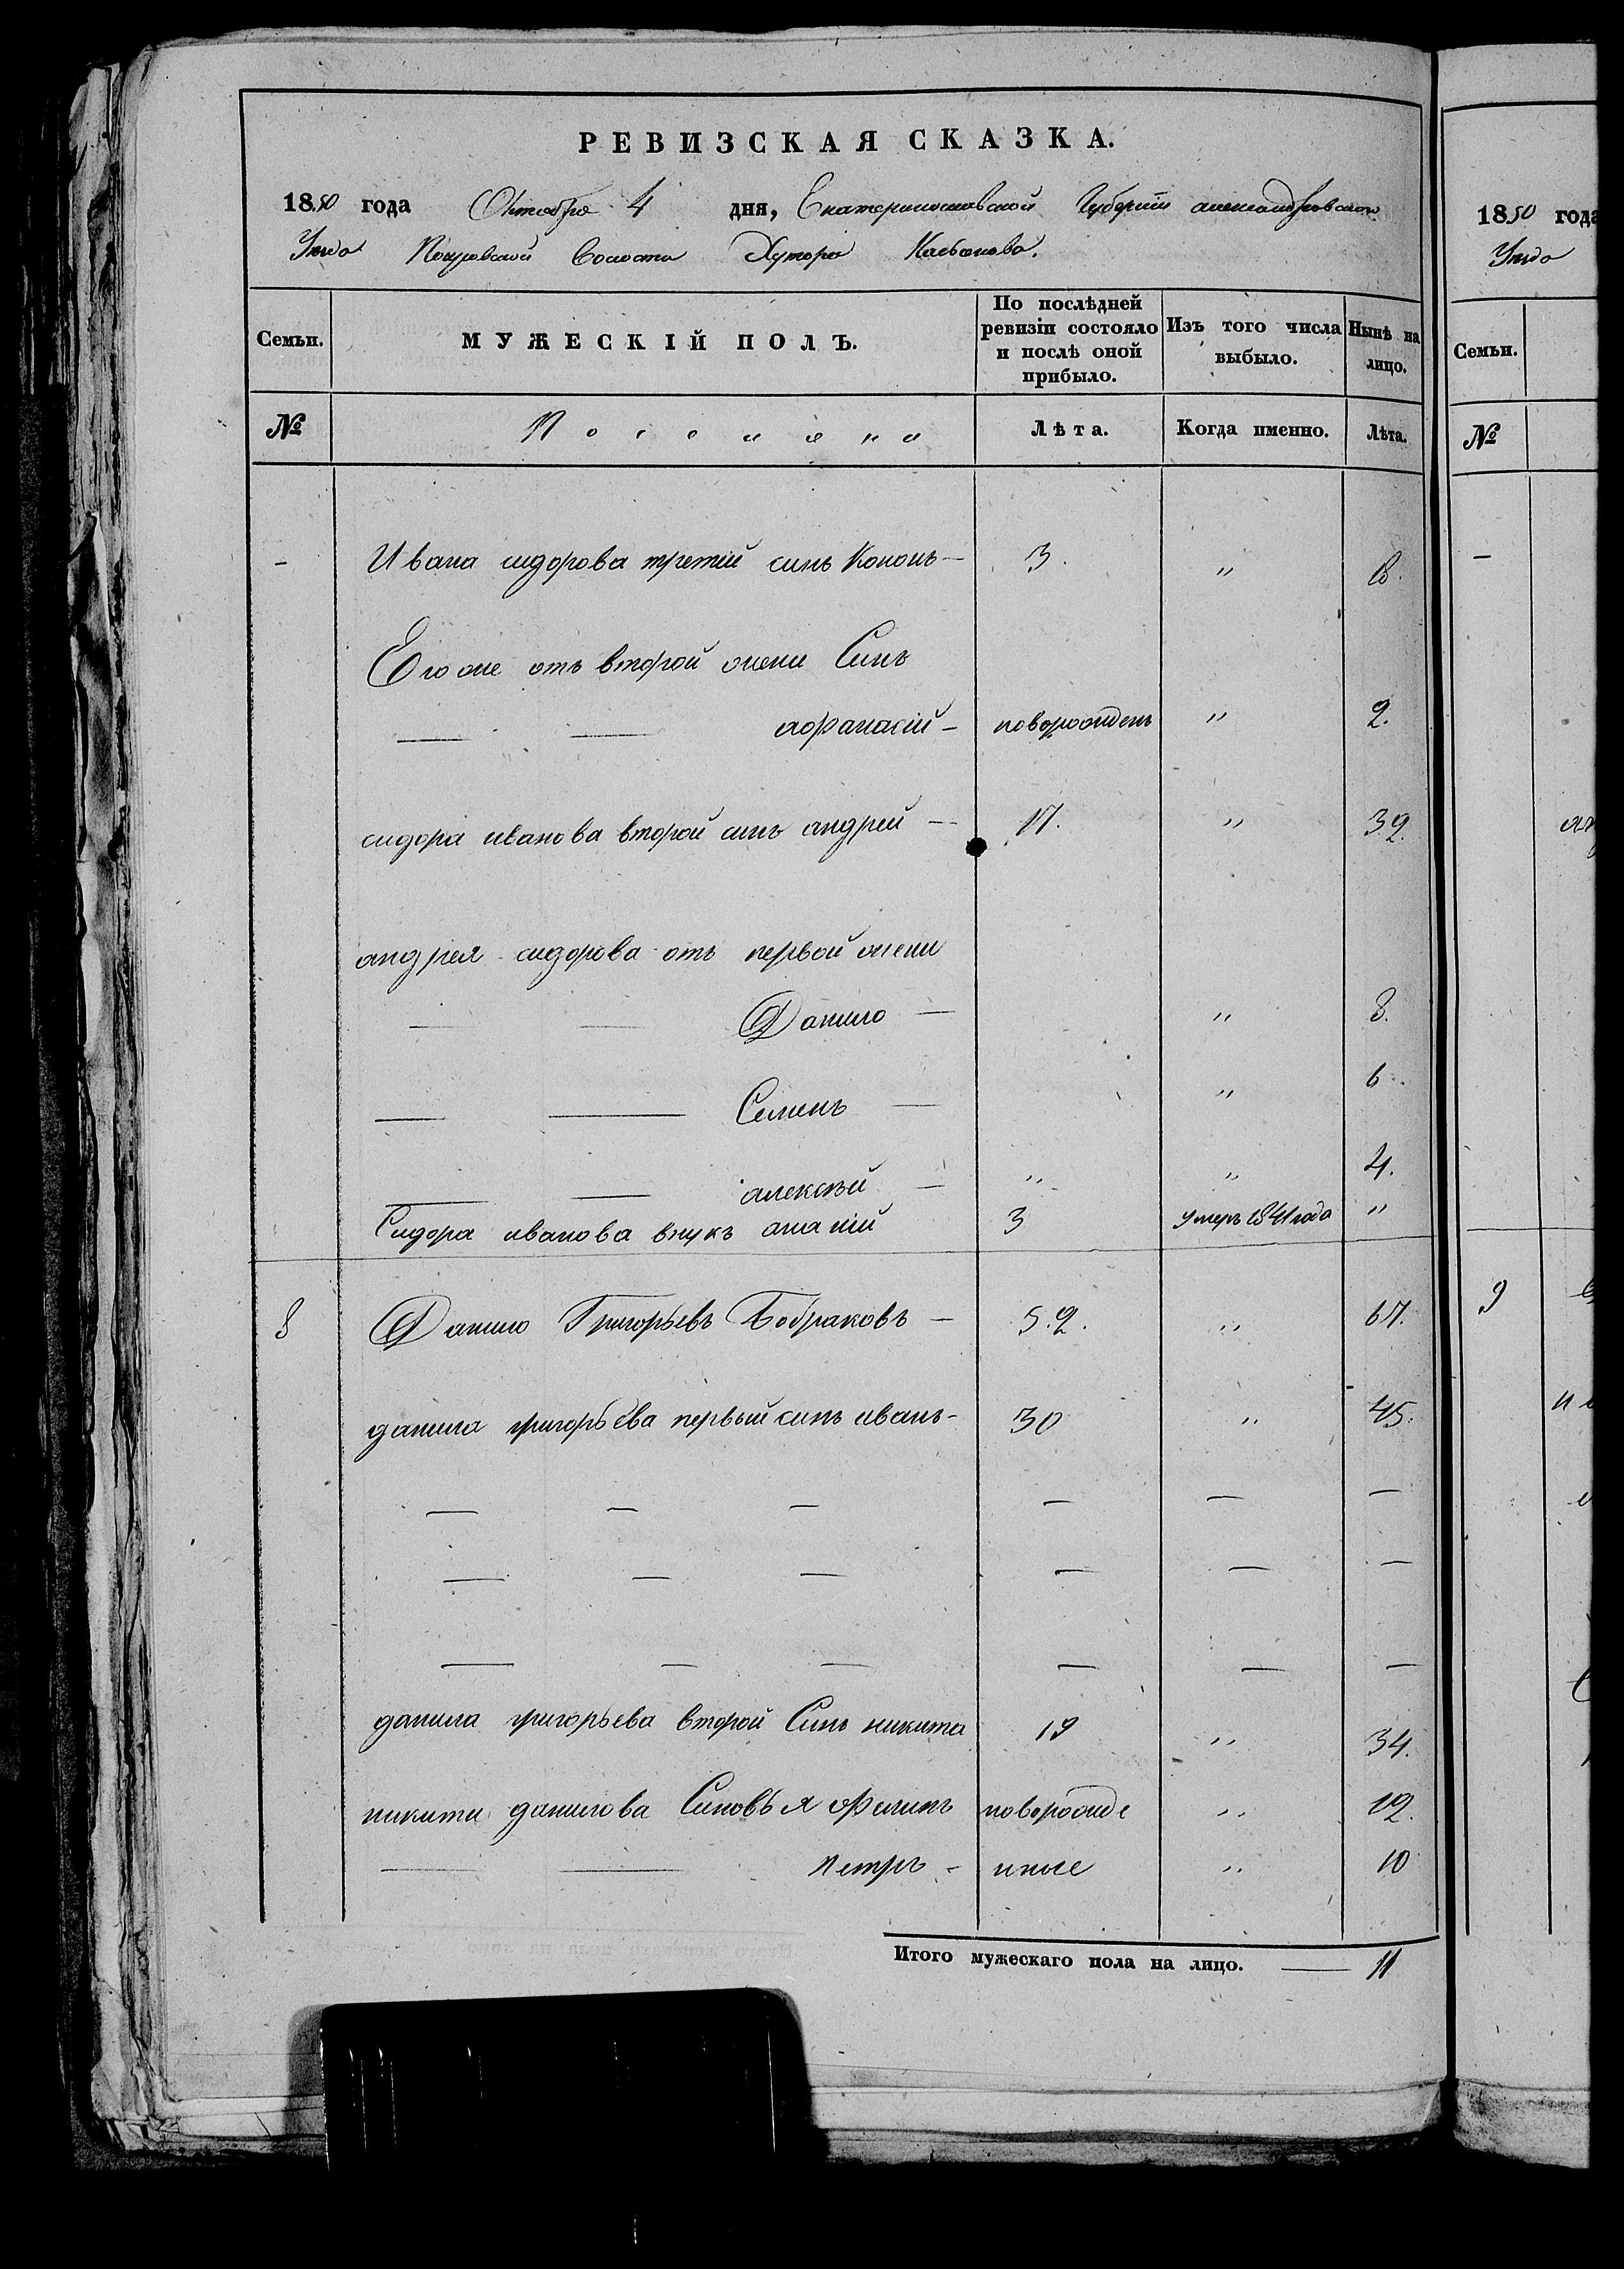 РЕВИЗСКАЯ СКАЗКА.
1850 года Октября 4 дня, Екатеринославской Губернии александровскаго
Уезда Покровской Волости Хутора
Семьи. МУЖЕСКІЙ ПОЛЪ. По послѣдней ревизіи состояло и послѣ оной прибыло. Изъ того числа выбыло. Нынѣ на лицо.
№ Поселяне Лѣта. Когда именно. Лѣта.
- Ивана сидорова третій синъ Кононъ — 3. " 18.
Его же отъ второй жени Синъ
— — афанасій — новорожденъ " 2.
сидора иванова второй синъ андрей — 17. " 32.
андрея сидорова отъ первой жени
— — Данило — " 8.
— — Семенъ — " 6.
— — алексѣй — " " 4.
Сидора иванова внукъ ананій 3 умеръ 1841 года "
8 Данило Григорьевъ Бобраковъ — 52. " 67.
данила григорьева первый синъ иванъ — 30 " 45.
— — — — — —
— — — — — —
— — — — — —
данила григорьева второй Синъ никита 19 " 34.
никити данилова Синовъя филипъ новорожде " 12.
— — петръ - нные " 10
Итого мужескаго пола на лицо. — 11
1850 года
Уезда
Семьи.
№
-
9